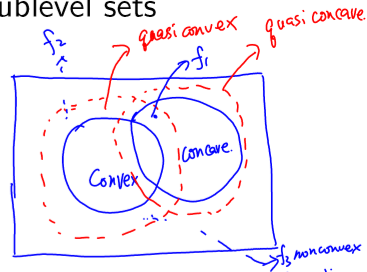 ublevel sets
f₂
quasi convex
quasi concave
f₁
Convex
Concave.
f₃ nonconvex